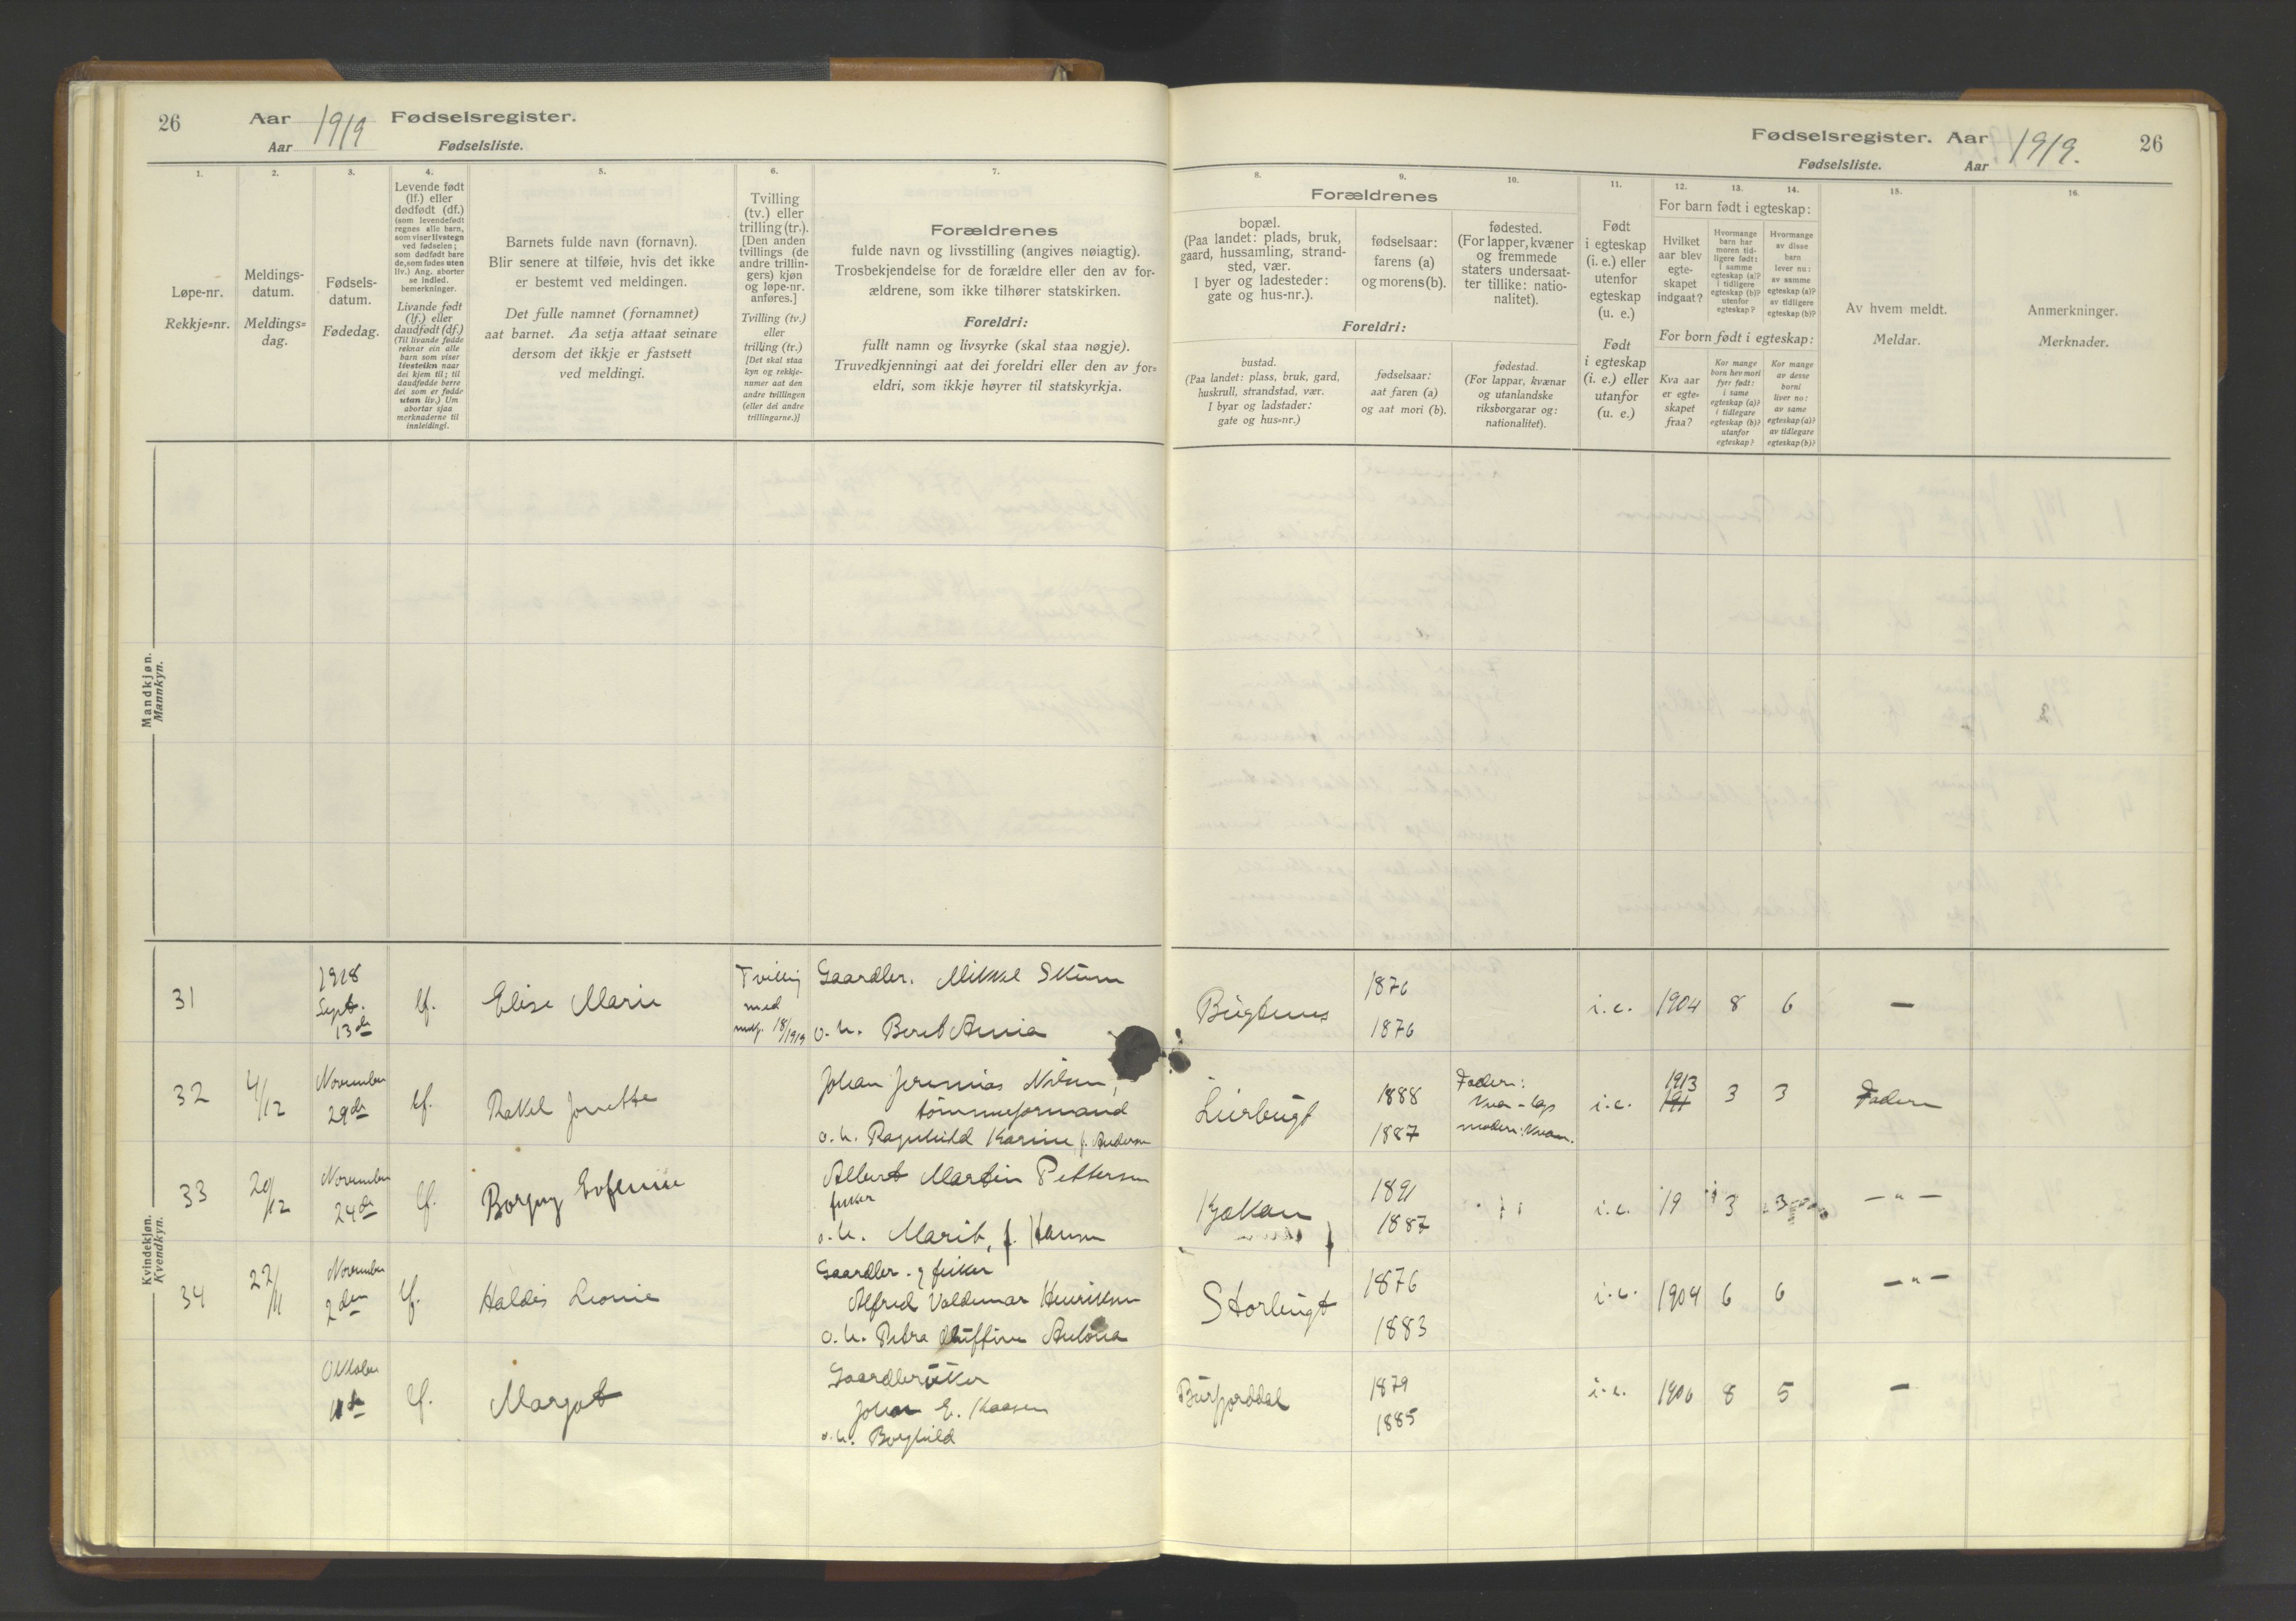 26
Aar 1919 Fødselsregister.
Aar
Fødselsliste.
1.
Løpe-nr.
Rekkje=nr.
2.
Meldings-
datum.
Meldings=
dag.
3.
Fødsels-
datum.
Fødedag.
4.
Levende født
(lf.) eller
dødfødt (df.)
(som levendefødt
regnes alle barn,
som viser livstegn
ved fødselen;
som dødfødt bare
de, som fødes uten
liv.) Ang. aborter
se indled.
bemerkninger.
Livande født
(lf.) eller
daudfødt (df.)
(Til livande fødde
reknar ein alle
barn som viser
livsteikn naar
dei kjem til; til
daudfødde berre
dei som er fødde
utan liv.) Um
abortar sjaa
merknaderne til
innleidingi.
5.
Barnets fulde navn (fornavn).
Blir senere at tilføie, hvis det ikke
er bestemt ved meldingen.
Det fulle namnet (fornamnet)
aat barnet. Aa setja attaat seinare
dersom det ikkje er fastsett
ved meldingi.
6.
Tvilling
(tv.) eller
trilling (tr.).
[Den anden
tvillings (de
andre trillin-
gers) kjøn
og løpe-nr.
anføres.]
Tvilling (tv.)
eller
trilling (tr.)
[Det skal staa
kyn og rekkje-
numer aat den
andre tvillingen
(eller dei andre
trillingarne.)]
7.
Forældrenes
fulde navn og livsstilling (angives nøiagtig).
Trosbekjendelse for de forældre eller den av for-
ældrene, som ikke tilhører statskirken.
Foreldri:
fullt namn og livsyrke (skal staa nøgje).
Truvedkjenningi aat dei foreldri eller den av for=
eldri, som ikkje høyrer til statskyrkja.
Mandkjøn.
Mannkyn.
Kvindekjøn.
Kvendkyn.
31
1918
Sept.
13de
lf.
Elise Marie
Tvilling
med
18/1919
Gaardbr. Mikkel Skum
o. h. Berit Anna
32
4/12
November
29de
lf.
Rakel Jonette
Johan Jeremias Nilsen,
tømmeformand
o. h. Ragnhild Karine f. Andersen
33
20/12
November
24de
lf.
Borgny Eufemie
Albert Martin Pettersen
fisker
o. h. Marit, f. Hansen
34
27/11
November
2den
lf.
Haldis Leonie
Gaardbr. og fisker
Alfred Valdemar Henriksen
o. h. Petra Antona
Oktober
11te
lf.
Margot
Gaardbruker
Johan E. Kaasen
o. h. Borghild
Fødselsregister. Aar 1919.
26
Fødselsliste.
Aar
8.
9.
10.
Forældrenes
bopæl.
(Paa landet: plads, bruk,
gaard, hussamling, strand-
sted, vær.
I byer og ladesteder:
gate og hus-nr.).
fødselsaar:
farens (a)
og morens (b).
fødested.
(For lapper, kvæner
og fremmede
staters undersaat-
ter tillike: natio-
nalitet).
Foreldri:
bustad.
(Paa landet: plass, bruk, gard,
huskrull, strandstad, vær.
I byar og ladstader:
gate og hus=nr.)
fødselsaar:
aat faren (a)
og aat mori (b).
fødestad.
(For lappar, kvænar
og utanlandske
riksborgarar og:
nationalitet).
11.
Født
i egteskap
(i. e.) eller
utenfor
egteskap
(u. e.)
Født
i egteskap
(i. e.) eller
utanfor
(u. e.)
12.
13.
14.
For barn født i egteskap:
Hvilket
aar blev
egte-
skapet
indgaat?
Hvormange
barn har
moren tid-
ligere født:
i samme
egteskap (a)?
i tidligere
egteskap (b)?
utenfor
egteskap?
Hvormange
av disse
barn
lever nu:
av samme
egteskap (a)?
av tidligere
egteskap (b)?
For born født i egteskap:
Kva aar
er egte=
skapet
fraa?
Kor mange
born hev mori
fyrr født:
i same
egteskap (a)?
i tidlegare
egteskap (b)?
utanfor
egteskap?
Kor mange
av desse
borni
liver no:
av same
egteskap (a)?
av tidlegare
egteskap (b)?
15.
Av hvem meldt.
Meldar.
16.
Anmerkninger.
Merknader.
Bugtnes
1876
1876
i. e.
1904
8
6
—
Lurbugt
1888
1887
Faderen:
Kvæn-lap
moderen: Kvæn.
i. e.
1913
191
3
3
Faderen
Kjækan
1891
1887
i. e.
19
3
3
— " —
Storbugt
1876
1883
i. e.
1904
6
6
— " —
Burfjorddal
1879
1885
i. e.
1906
8
5
—